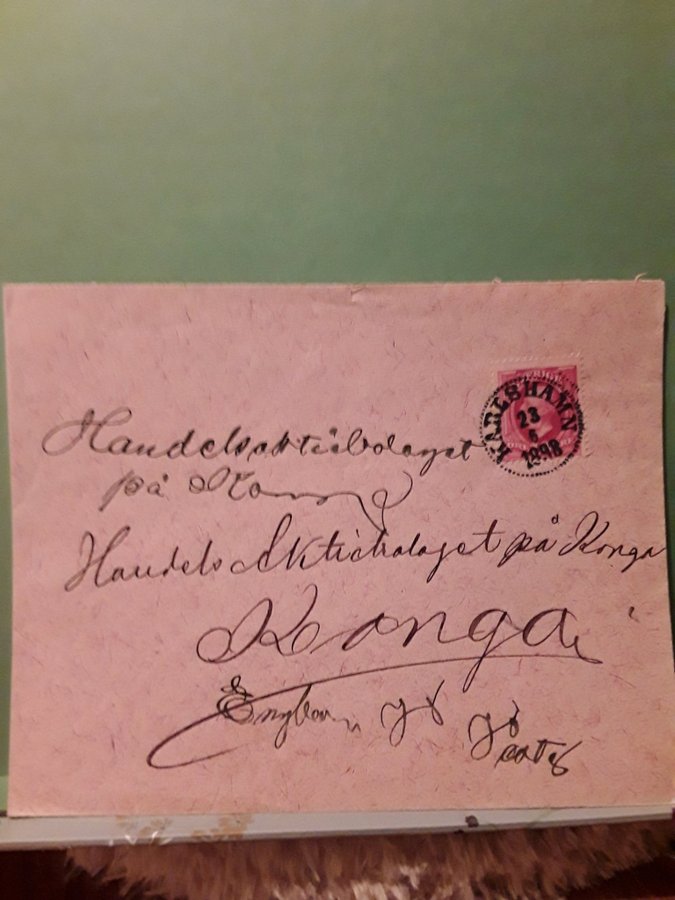 KARLSHAMN
23
6
1898
Handelsaktiebolaget
på Konga
Handels Aktiebolaget på Konga
Konga